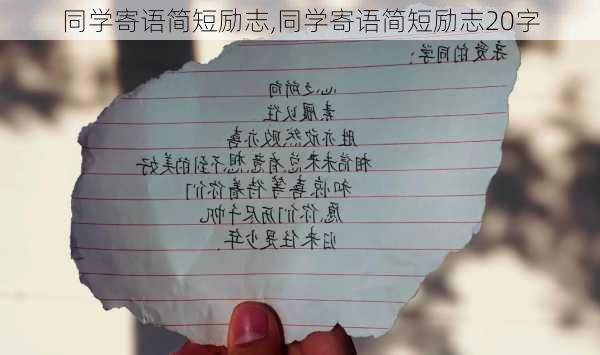 同学寄语简短励志,同学寄语简短励志20字
亲爱的同学:
心之所向
素履以往
胜亦欣然败亦喜
相信未来总有意想不到的美好
和惊喜等待着你们
愿你们历尽千帆
归来仍是少年.